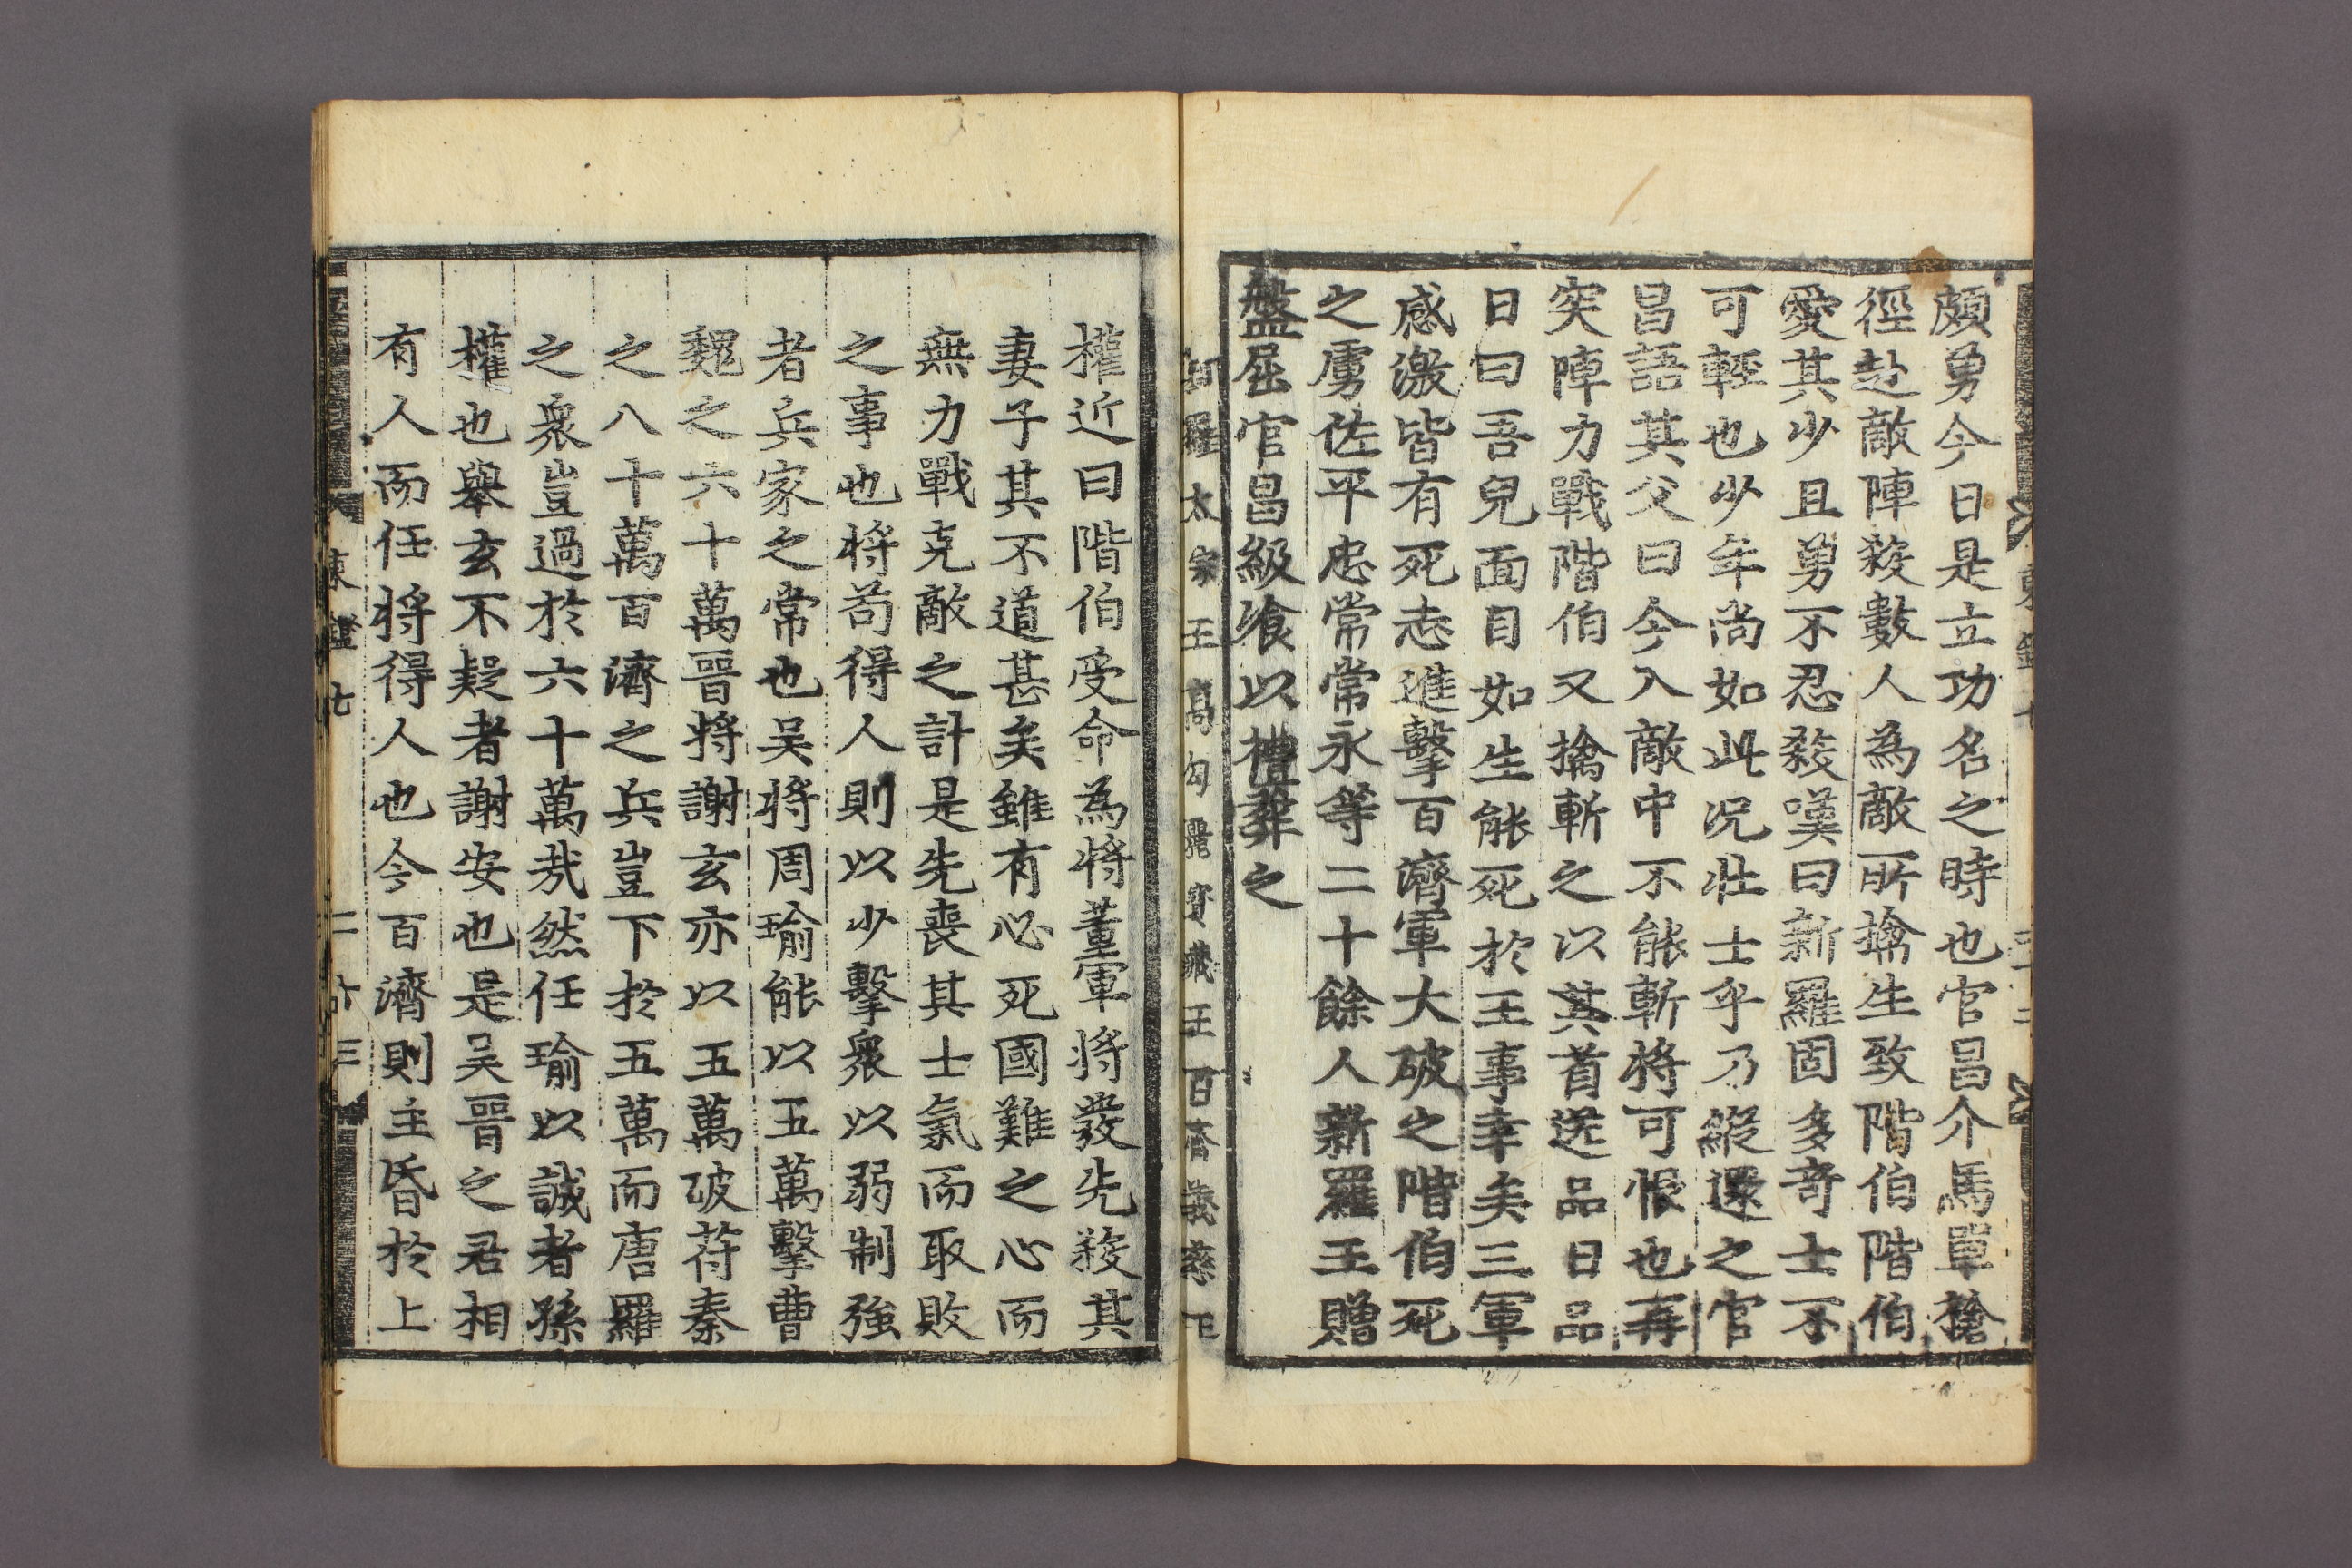 頗勇今日是立功名之時也官昌介馬單槍
徑赴敵陣殺數人為敵所擒生致階伯階伯
愛其少且勇不忍殺嘆曰新羅固多奇士不
可輕也少年尚如此况壯士乎乃縱還之官
昌語其父曰今入敵中不能斬將可恨也再
突陣力戰階伯又擒斬之以其首送品日品
日曰吾兒面目如生能死於王事幸矣三軍
感激皆有死志進擊百濟軍大破之階伯死
之虜佐平忠常常永等二十餘人新羅王贈
盤屈官昌級飡以禮葬之
新羅太宗王高句麗寶藏王百濟義慈王
權近曰階伯受命為將董軍將發先殺其
妻子其不道甚矣雖有必死國難之心而
無力戰克敵之計是先喪其士氣而取敗
之事也將苟得人則以少擊衆以弱制強
者兵家之常也吳將周瑜能以五萬擊曹
魏之六十萬晉將謝玄亦以五萬破苻秦
之八十萬百濟之兵豈下於五萬而唐羅
之衆豈過於六十萬哉然任瑜以誠者孫
權也舉玄不疑者謝安也是吳晉之君相
有人而任將得人也今百濟則主昏於上
東鑑七 二十三